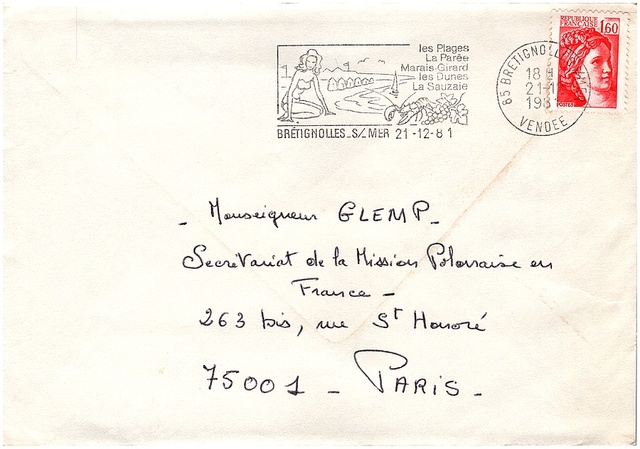 les Plages
La Parée
Marais-Girard
les Dunes
La Sauzaie
BRÉTIGNOLLES_S/MER 21-12-81
85 BRETIGNOLL
18 H
21-1
198
VENDEE
REPUBLIQUE
FRANÇAISE 1,60
POSTES
- Monseigneur GLEMP-
Secrétariat de la Mission Polonaise en
France -
263 bis, rue St Honoré
75001 - PARIS -